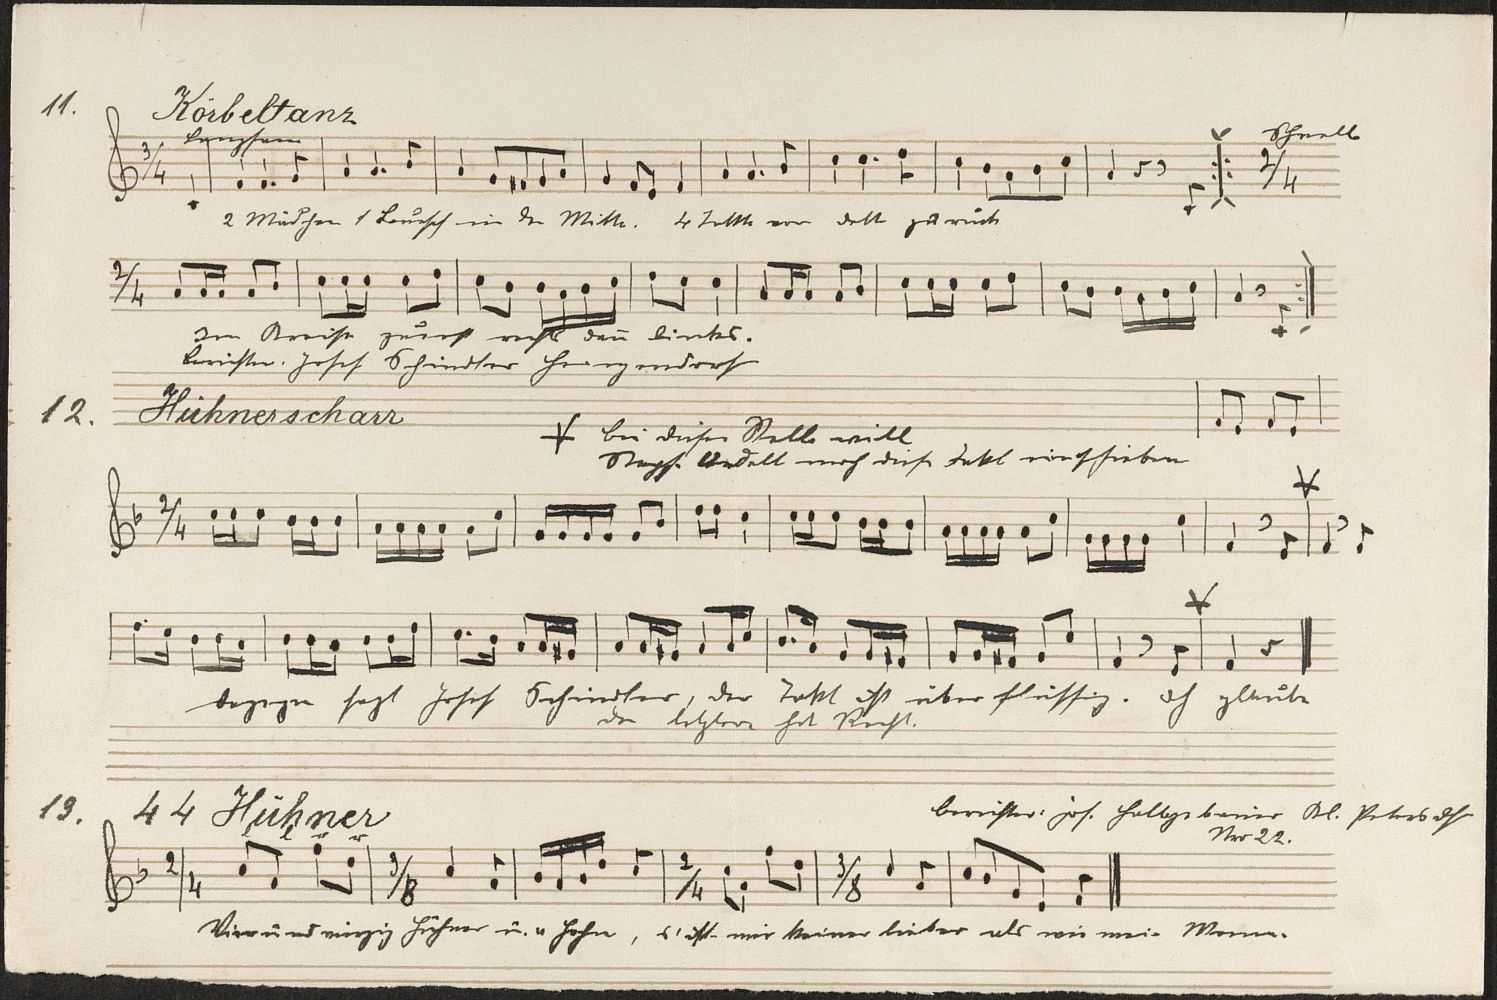 11. Körbeltanz
Langsam
3/4
Schnell
2/4
2 Mädchen 1 Bursch in der Mitte. 4 Takte vor dalt zurück
2/4
Im Kreise zuerst rechts dan̅ links.
Berichter: Josef Schindler
12. Hühnerscharr
bei dieser Stelle will
noch diese Takt einschieben
2/4
dagegen sagt Josef Schindler, der Takt ist überflüssig. Ich glaube
der letztere hat Recht.
13. 44 Hühner
berichter: Jos. Kl. Petersdf
Nro 22.
2/4 3/8 2/4 3/8
Vierundvierzig Hühner u. a Hohn, s' ist mir keiner lieber als wie mei Monn.